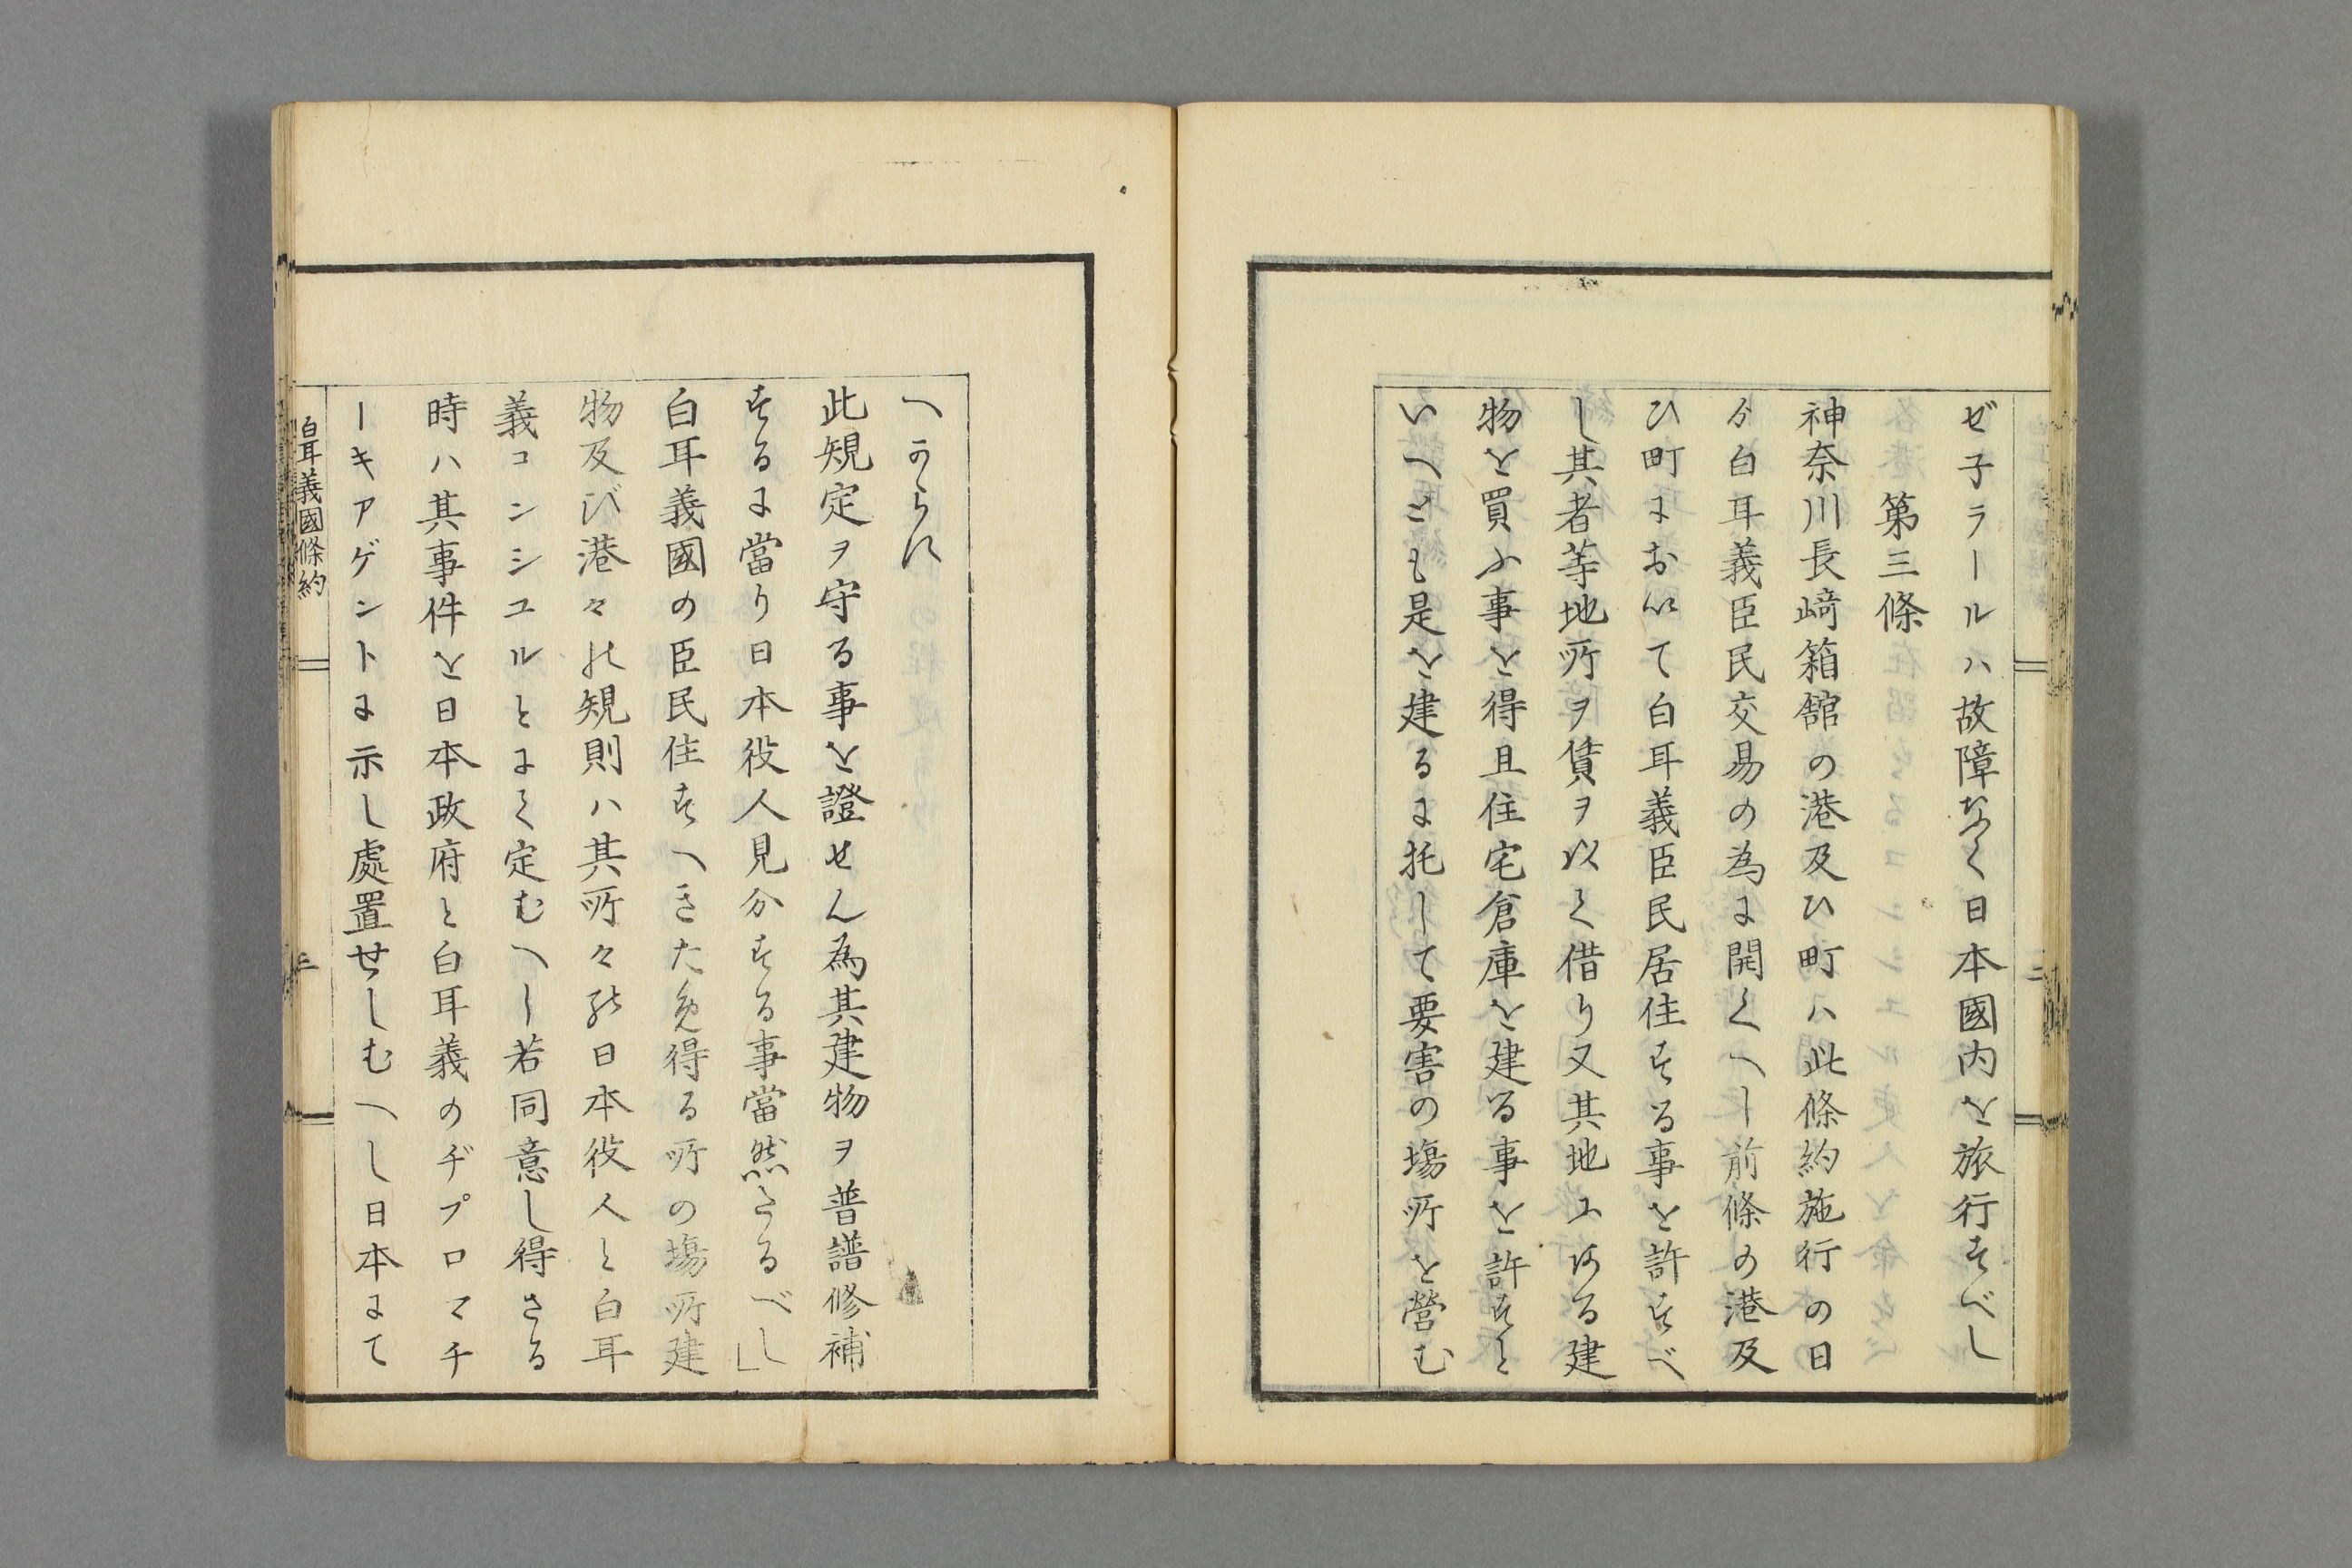 ゼ子ラールハ故障なく日本國内を旅行すべし
第三條
神奈川長﨑箱舘の港及ひ町ハ此條約施行の日
ゟ白耳義臣民交易の為に開くへし前條の港及
ひ町において白耳義臣民居住する事を許すべ
し其者等地所ヲ賃ヲ以て借り又其地にある建
物を買ふ事を得且住宅倉庫を建る事を許すと
いへとも是を建るに托して要害の塲所を營む
へからす
此規定ヲ守る事を證せん為其建物ヲ普譜修補
するに當り日本役人見分する事當然たるべし」
白耳義國の臣民住すへきため得る所の塲所建
物及び港々の規則ハ其所々の日本役人と白耳
義コンシユルとにて定むへし若同意し得さる
時ハ其事件を日本政府と白耳義のヂプロマチ
ーキアゲントに示し處置せしむへし日本にて
白耳義國條約
三